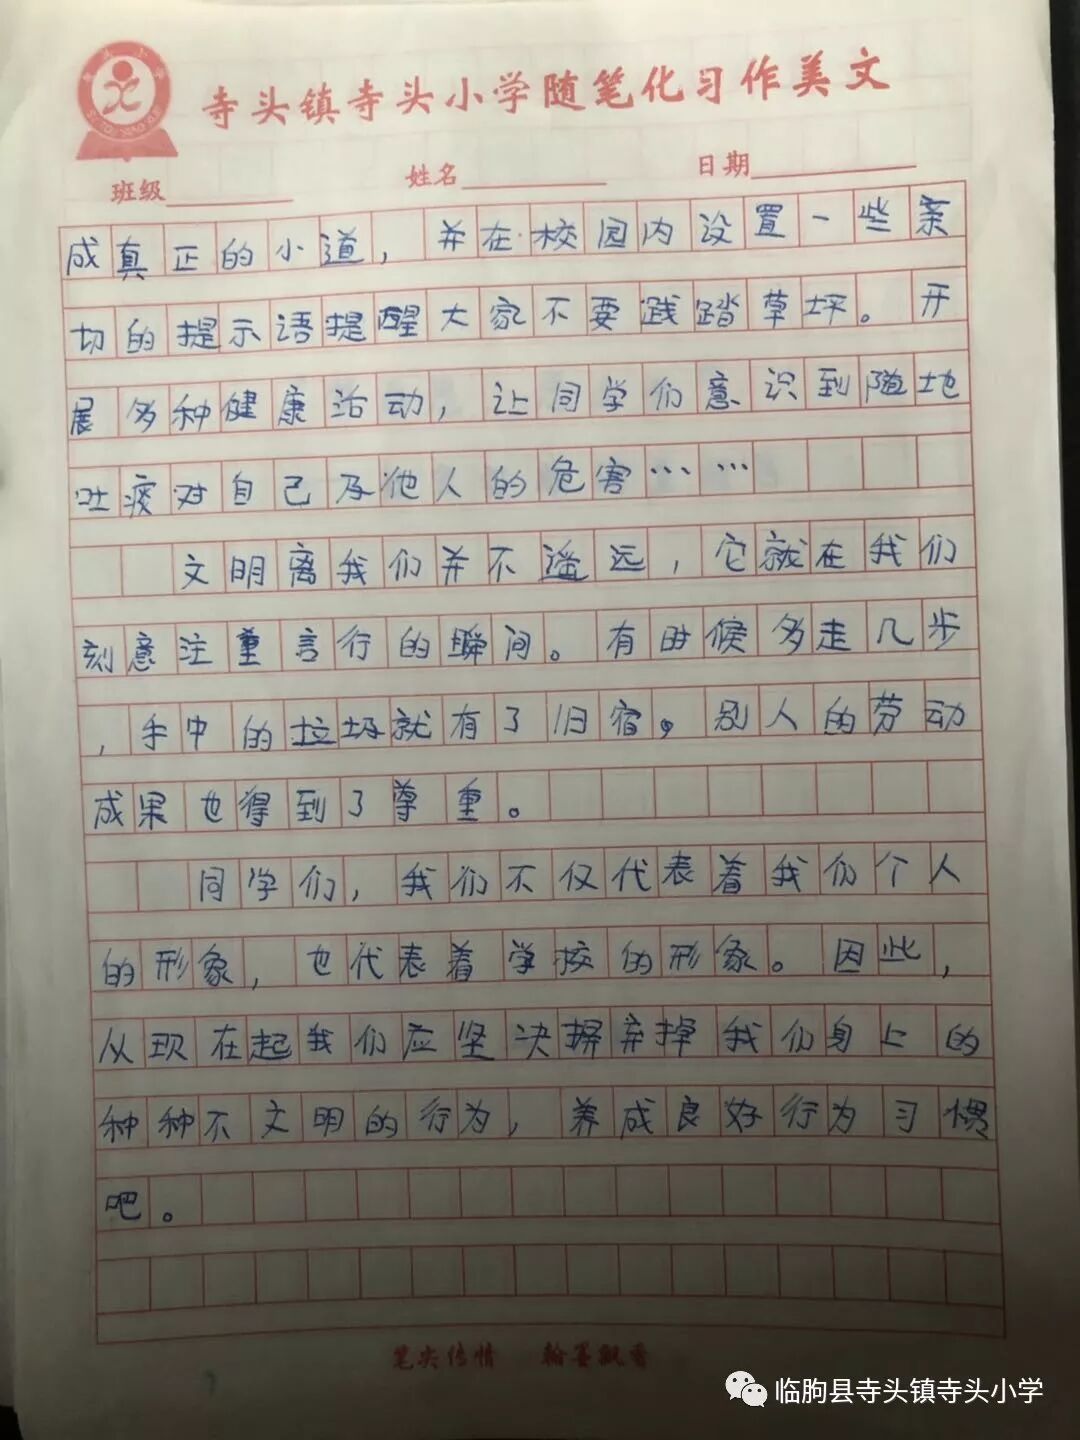 寺头镇寺头小学随笔化习作美文
班级 姓名 日期
成真正的小道，并在校园内设置一些亲
切的提示语提醒大家不要践踏草坪。开
展多种健康活动，让同学们意识到随地
吐痰对自己及他人的危害……
文明离我们并不遥远，它就在我们
刻意注重言行的瞬间。有时候多走几步
，手中的垃圾就有了归宿。别人的劳动
成果也得到了尊重。
同学们，我们不仅代表着我们个人
的形象，也代表着学校的形象。因些，
从现在起我们应坚决摒弃掉我们身上的
种种不文明的行为，养成良好行为习惯
吧。
笔尖传情 翰墨飘香
临朐县寺头镇寺头小学